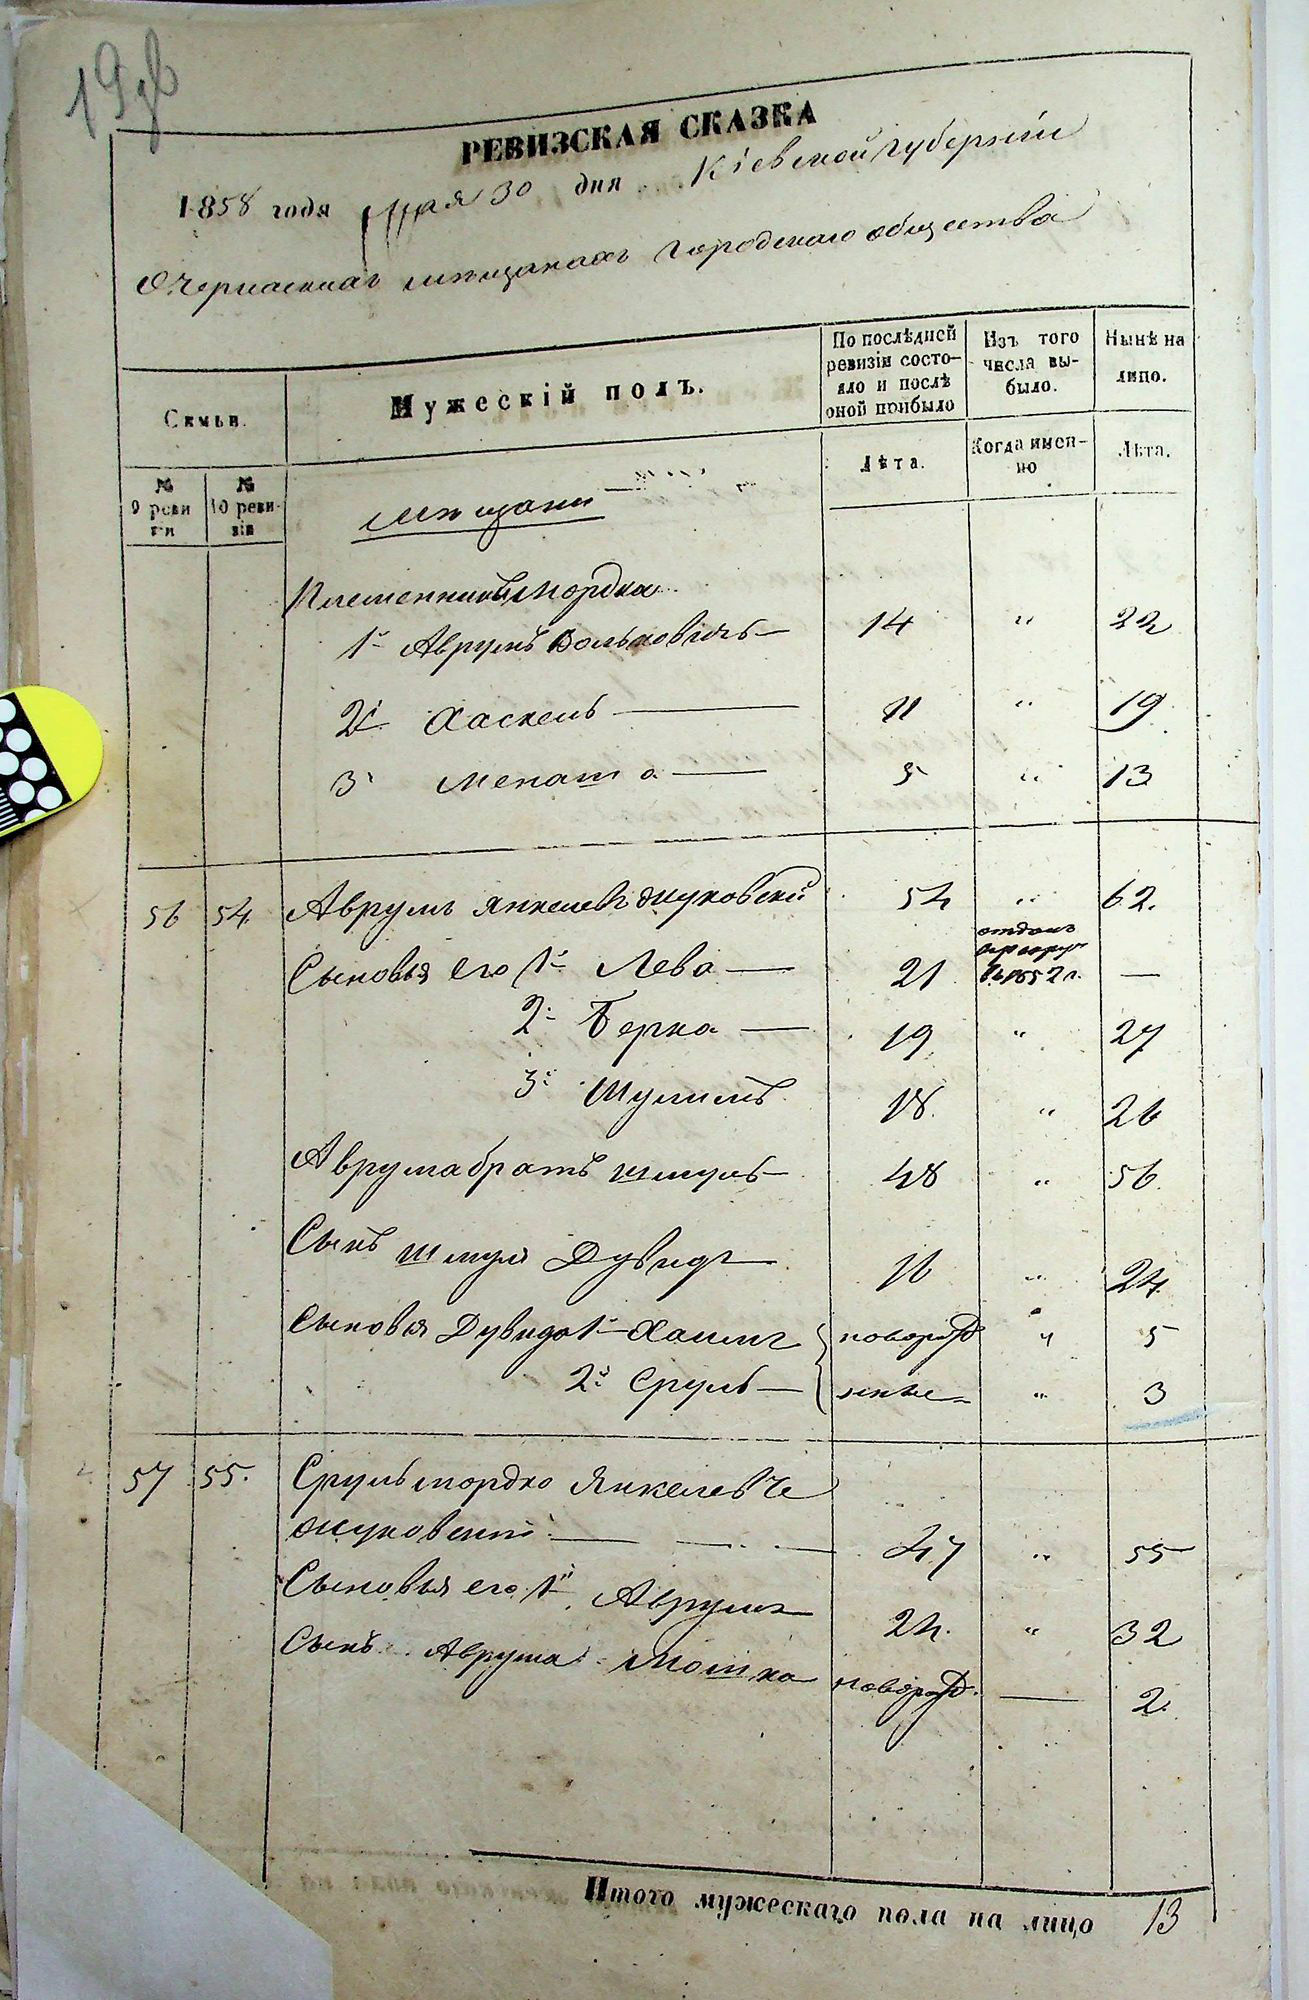 РЕВИЗСКАЯ СКАЗКА
1858 года Мая 30 дня Кіевской губерніи
О Черкаскихъ мѣщанахъ городскаго общества
Семьи.
Мужескій полъ.
По послѣдней ревизіи состояло и послѣ оной прибыло
Изъ того числа выбыло.
Нынѣ на лицо.
№ 9 ревизіи
№ 10 ревизіи
Лѣта.
Когда именно
Лѣта.
мѣщани
Племенники Мордка
1й Аврумъ Вольковичъ 14 " 22
2й Хаскель 11 " 19
3й Менаша 5 " 13
56 54 Аврумъ Янкелевъ Жуковскій 54 " 62.
Сыновья его 1й Лева 21 отданъ въ 1852 г. —
2й Берка 19 " 27
3й Шулимъ 18 " 26
Аврума братъ Шмуль 48 " 56
Сынъ Шмуля Дувидъ 16 " 24
Сыновья Дувида 1й Хаимъ новорожд " 5
2й Сруль " 3
57 55. Срульмордко Янкелев
Жуковскій 47 " 55
Сыновья его 1й Аврумъ 24. " 32
Сынъ Аврума Мошка новорожд. — 2.
Итого мужескаго пола на лицо 13